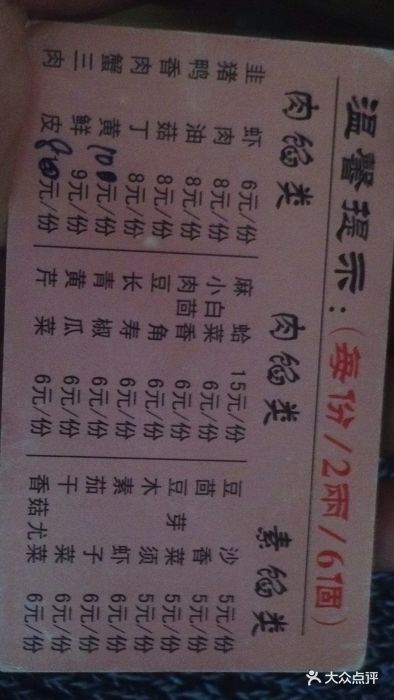 温馨提示：（每份/2兩/6個）
肉馅类 肉馅类 素馅类
韭虾 6元/份 麻蛤 15元/份 豆沙 5元/份
猪肉 8元/份 小白菜 6元/份 茴香 5元/份
鸭油 8元/份 肉茴香 6元/份 豆芽菜 5元/份
香菇 8元/份 豆角 6元/份 木须 5元/份
肉丁 8元/份 长寿 6元/份 素虾 6元/份
蟹黄 10元/份 青椒 6元/份 茄子 6元/份
三鲜 9元/份 黄瓜 6元/份 干菜 6元/份
肉皮 元/份 芹菜 6元/份 香菇尤菜 6元/份
大众点评